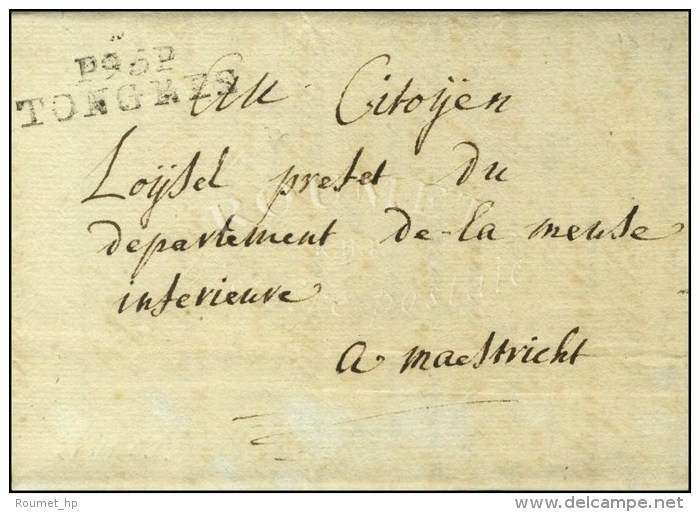 P95P
TONGRES
Au Citoÿen
Loÿsel prefet du
departement de-la meuse
inferieure
a maestricht
ROUMET
postale
Roumet_hp
© delcampe.net